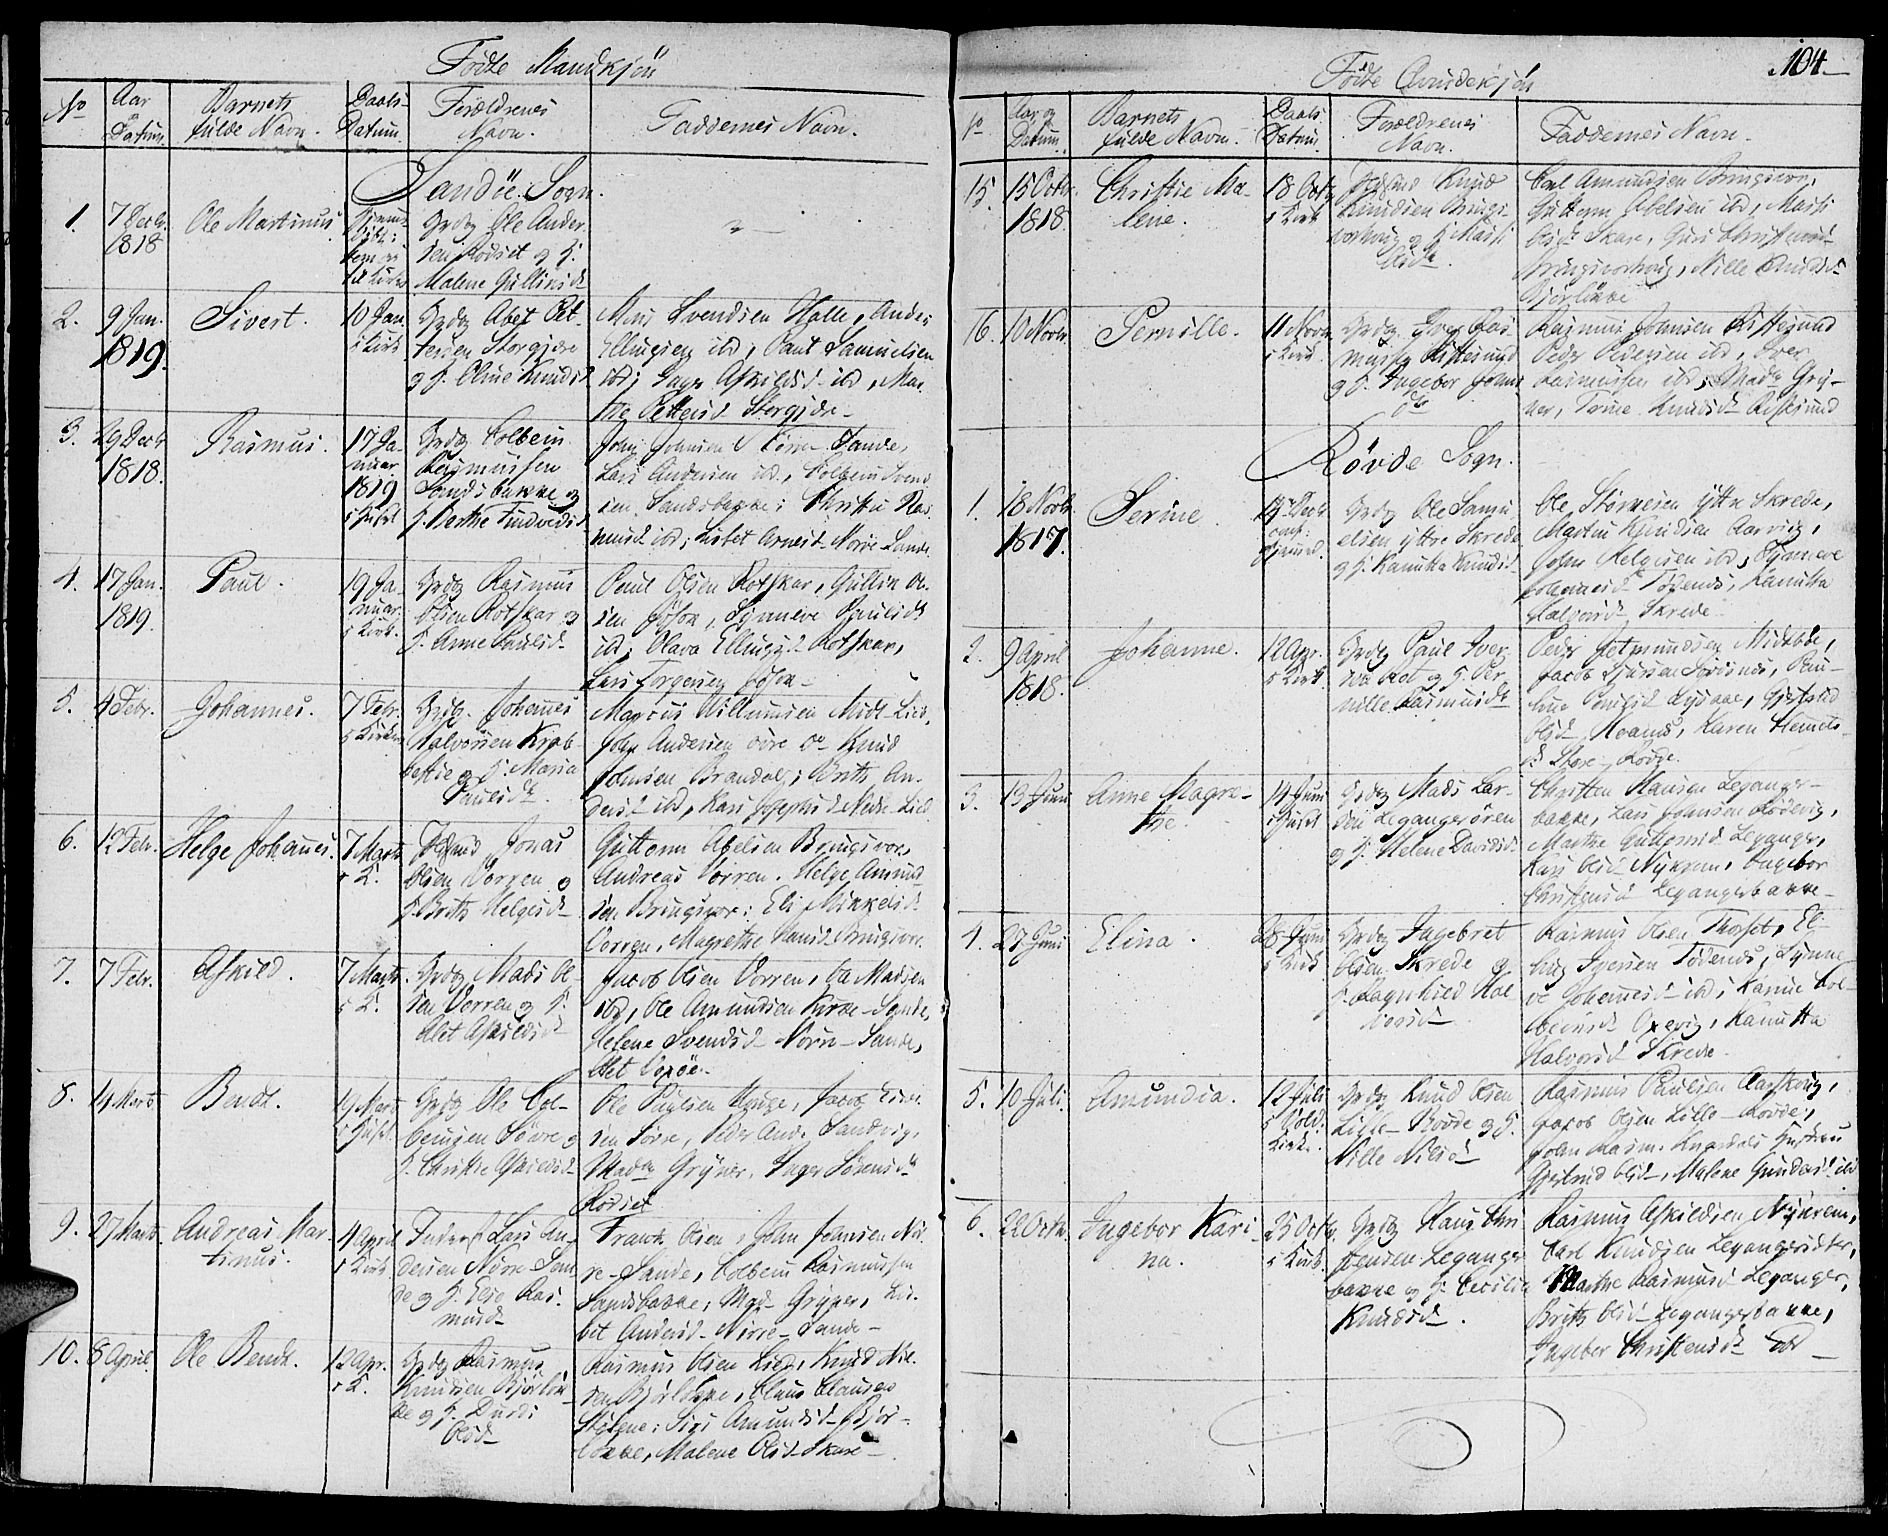 Födte Mandkjön
No
Aar
Datum
Barnets
fulde Navn.
Daabs-
Datum.
Forældrenes
Navn.
Faddernes Navn.
Sandöe Sogn.
1.
7 Decbr
1818
Ole Martinus
til Kirke
Grdbr Ole Ander
sen Rödset og H.
Malene Gullinsd
2.
9 Jan.
1819.
Sivert.
10 Jan.
i Kirk
Grdbr Abel Pet-
tersen Storgjære
og H. Oline Knudsd
Mons Svendsen Halle, Anders
Ellingsen ibd, Paul Samuelsen
ibd, Inger Askildsd ibd, Mar
the Pettersd Storgjære
3.
29 Decbr
1818.
Rasmus.
17 Ja-
nuar
1819
Grdbr Colbein
Rasmussen
Sandsbakke og
H. Berthe Findvedsd
John Johnsen Nörre Sande,
Lars Andersen ibd., Colbein Svend
sen Sandsbakke; Christie Ras
musd ibd; Lisbet Arnesd Nörre Sande
4.
17 Jan.
1819.
Paul.
19 Ja-
nuar
i Kirk.
Grdbr Rasmus
Olsen Rotskar og
H. Anne Paulsd
Paul Olsen Rotskar, Gullik Ol-
sen Jöson, Synneve Paulsd
ibd; Olava Ellingsd Rotskar,
Lars Torgersen Jöson
5.
4 Febr.
Johannes.
7 Febr.
i Kirken
Grdbr. Johannes
Halvorsen Krab-
bestie og H. Maria
Paulsd.
Marcus Willumsen Midt-Lied,
John Andersen övre do Knud
Johnsen Brandal; Brithe An-
dersd ibd, Kari Josephsd Nedre Lied
6.
12 Febr.
Helge Johannes.
7 Marts
i K.
Jonas
Olsen Vorren og
H. Brithe Helgesd
Guttorm Abelsen Bringsvor,
Andreas Vorren. Helge Amund
sen Bringsvor; Eli Mikkelsd
Vorren, Magrethe Hansd Bringsvor
7.
7 Febr.
Askild.
7 Marts
i K.
Grdbr Mads Ol-
sen Vorren og H.
Alet Askildsd
Jacob Olsen Vorren, Ole Madsen
ibd, Ole Amundsen Kirke-Sande,
Helene Svendsd Nörre-Sande,
Alet Voxöe.
8.
14 Marts
Bendt.
19 Marts
Grdbr Ole Col-
beinsen Sörre og
H. Christie Askildsd
Ole Paulsen Hauge, Jacob
sen Sörre, Peder And. Sandvig,
Madm Gryner, Inger Sörensd
Rödset
9.
27 Marts
Andreas Mar-
tinus.
4 April
i Kirk
Inderst Lars An-
dersen Nörre San
de og H. Else Ras-
musd
Frants Olsen, John Johnsen Nör-
re-Sande, Colbein Rasmussen
Sandsbakke, Mad Gryner, Lis-
bet Andersd Nörre-Sande
10.
8 April
Ole Bendt.
12 Apr.
i K.
Grdbr Rasmus
Knudsen Björlök
ke og H. Durdi
Olsd
Rasmus Olsen Lied, Knud Nil-
sen Björlökke, Claus Clausen
Siri Amundsd Björ-
lökke, Malene Olsd Skare
104
Födte Qvindekjön
No
Aar og
Datum
Barnets
fulde Navn.
Daabs
Datum.
Forældrenes
Navn.
Faddernes Navn.
15.
15 Octbr
1818.
Christie Ma-
lene.
18 Octbr
i Kirk
Knud
Knudsen Brings-
vorhoug og H. Massi
Olsdr.
Carl Amundsen Bringsvor,
Guttorm Abelsen ibd, Massi
Olsd Skare, Guri Christensd
Bringsvorhoug, Nille Knudsd
Björlökke
16.
10 Novbr
Pernille.
11 Novbr
i Kirk
Grdbr Iver Ras-
mussen Kittesund
og H. Ingebor Johns
dr
Rasmus Johnsen Kittesund
Peder Pedersen ibd, Iver
Rasmussen ibd, Madm Gry-
ner, Trine Knudsd Kittesund
Rövde Sogn.
1.
18 Novbr
1817.
Serine
14 Decbr
Grdbr Ole Samu
elsen yttre Skrede
og H. Kanutta Knudsd
Ole Störkesen ytre Skrede,
Martin Knudsen Aarvig,
John Helgesen ibd, Synneve
Johannesd Tödenes, Kanutta
Halvorsd Skrede
2.
9 April
1818.
Johanne.
12 Apr.
i Kirk
Grdbr Paul Iver
Per
nille Rasmusdr
Peder Jetmundsen Midtböe,
Jacob Sjursen Sörsnes, Pau-
line Paulsd Gjertrud
Olsd Aanes, Karen Hemels
d Store-Rövde.
3.
13 Juni
Anne Magre-
the.
14 Juni
Grdbr Mads Lar-
sen Legangerören
og H. Helene Davidsd
Christen Hansen Leganger-
bakke, Lars Johnsen Rödevig,
Marthe Guttormsd Leganger,
Kari Olsd Nykrem, Ingebor
Christensd Legangerbakke
4.
27 Juni
Elina.
28 Juni
i Kirk
Grdbr Ingebret
Olsen Skrede og
H. Ragnhild Hal
vorsd
Rasmus Olsen Thorset, El-
ling Iversen Tödenes, Synne-
ve Johannesd ibd; Karine Col-
beinsd Oxevig, Kanutta
Halvorsd Skrede
5.
10 Juli
Amundia.
12 Juli
i Vold.
Kirke.
Grdbr Knud Olsen
Lille-Rövde og H.
Nille Nilsd
Rasmus Paulsen Aarskoug,
Jacob Olsen Lille-Rövde,
John Rasm. Hustru
Gjertrud Olsd, Malene Gundersd ibd
6.
22 Octbr.
Ingebor Kari-
na.
25 Octbr.
i Kirk.
Grdbr Hans Chri
stensen Leganger
bakke og H. Cecilia
Knudsd.
Rasmus Askildsen Nykrem,
Carl Knudsen Legangersæter,
Marthe Rasmusd Leganger,
Brithe Olsd Legangerbakke,
Ingebor Christensd do